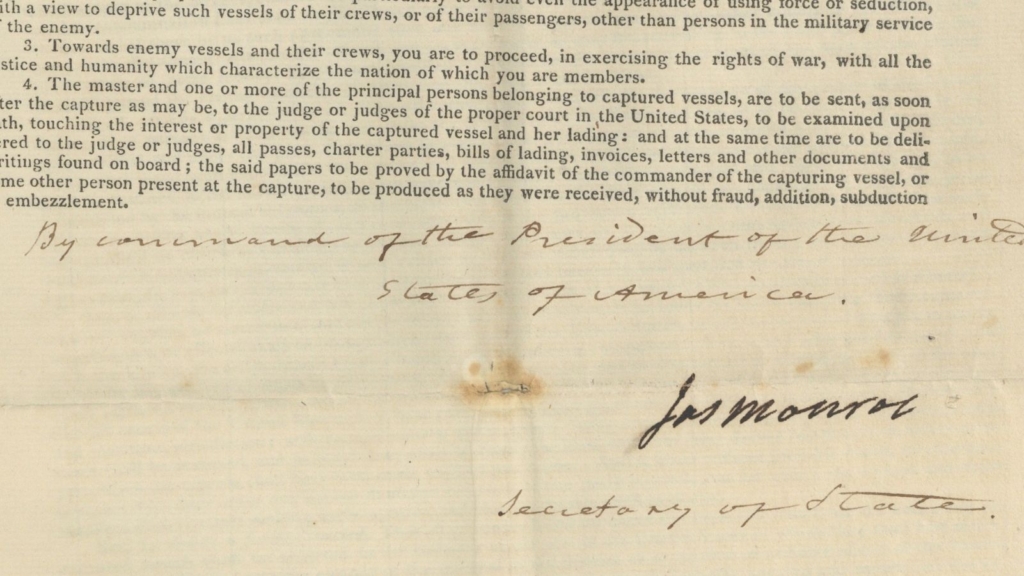 particularly to avoid even the appearance of using force or seduction,
ith a view to deprive such vessels of their crews, or of their passengers, other than persons in the military service
f the enemy.
3. Towards enemy vessels and their crews, you are to proceed, in exercising the rights of war, with all the
stice and humanity which characterize the nation of which you are members.
4. The master and one or more of the principal persons belonging to captured vessels, are to be sent, as soon
ter the capture as may be, to the judge or judges of the proper court in the United States, to be examined upon
th, touching the interest or property of the captured vessel and her lading: and at the same time are to be deli-
ered to the judge or judges, all passes, charter parties, bills of lading, invoices, letters and other documents and
ritings found on board; the said papers to be proved by the affidavit of the commander of the capturing vessel, or
me other person present at the capture, to be produced as they were received, without fraud, addition, subduction
embezzlement.
By command of the President of the Unite
States of America.
Jas Monroe
Secretary of State.